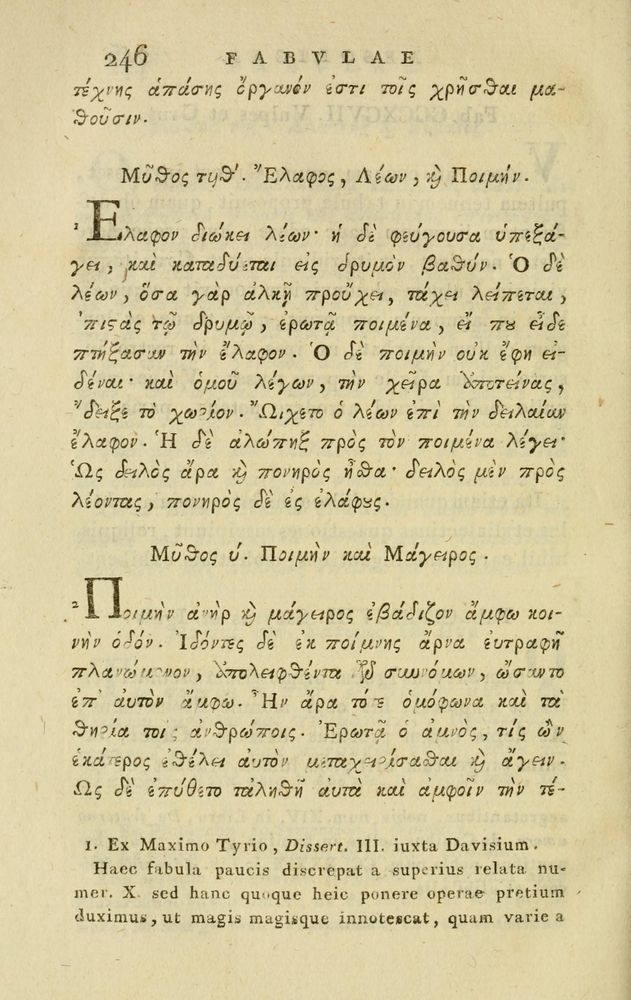 246 FABVLAE
τέχνης ἁπάσης ὄργανόν ἐστι τοῖς χρῆσθαι μα-
θοῦσιν.
Μῦθος τϟθʹ. Ἔλαφος, Λέων, ϗ Ποιμήν.
¹ Ἔλαφον διώκει λέων· ἡ δὲ φεύγουσα ὑπεξά-
γει, καὶ καταδύεται εἰς δρυμὸν βαθύν. Ὁ δὲ
λέων, ὅσα γὰρ ἀλκῇ προὔχει, τάχει λείπεται,
ἐπιϛὰς τῷ δρυμῷ, ἐρωτᾷ ποιμένα, εἴ πȣ εἶδε
πτήξασαν τὴν ἔλαφον. Ὁ δὲ ποιμὴν οὐκ ἔφη εἰ-
δέναι· καὶ ὁμοῦ λέγων, τὴν χεῖρα ἀποτείνας,
ἔδειξε τὸ χωρίον. Ὤιχετο ὁ λέων ἐπὶ τὴν δειλαίαν
ἔλαφον. Ἡ δὲ ἀλώπηξ πρὸς τὸν ποιμένα λέγει·
Ὡς δειλὸς ἄρα ϗ πονηρὸς ἦθα· δειλὸς μὲν πρὸς
λέοντας, πονηρὸς δὲ ἐς ἐλάφȣς.
Μῦθος ύ. Ποιμὴν καὶ Μάγειρος.
² Ποιμὴν ἀνὴρ ϗ μάγειρος ἐβάδιζον ἄμφω κοι-
νὴν ὁδόν. Ἰδόντες δὲ ἐκ ποίμνης ἄρνα εὐτραφῆ
πλανώμενον, ἀπολειφθέντα τῶν συννόμων, ὤσαντο
ἐπ' αὐτὸν ἄμφω. Ἦν ἄρα τότε ὁμόφωνα καὶ τὰ
θηρία τοῖς ἀνθρώποις. Ἐρωτᾷ ὁ ἀμνὸς, τίς ὢν
ἑκάτερος ἐθέλει αὐτὸν μεταχειρίσαθαι ϗ ἄγειν.
Ὡς δὲ ἐπύθετο τἀληθῆ αὐτὰ καὶ ἀμφοῖν τὴν τέ-
1. Ex Maximo Tyrio, Dissert. III. iuxta Davisium.
Haec fabula paucis discrepat a superius relata nu-
mer. X. sed hanc quoque heic ponere operae pretium
duximus, ut magis magisque innotescat, quam varie a